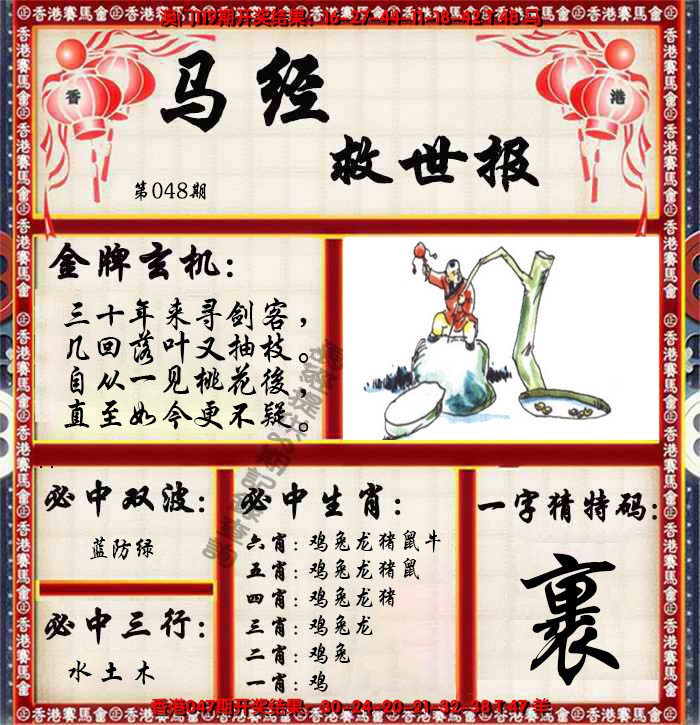 澳门119期开奖结果：16-27-44-11-18-42 T 48 马
香 港
马经
救世报
第048期
金牌玄机：
三十年来寻剑客，
几回落叶又抽枝。
自从一见桃花後，
直至如今更不疑。
必中双波：
蓝防绿
必中三行：
水土木
必中生肖：
六肖：鸡兔龙猪鼠牛
五肖：鸡兔龙猪鼠
四肖：鸡兔龙猪
三肖：鸡兔龙
二肖：鸡兔
一肖：鸡
一字猜特码：
裹
香港047期开奖结果：30-24-20-21-32-38 T 47 羊
香港賽馬會